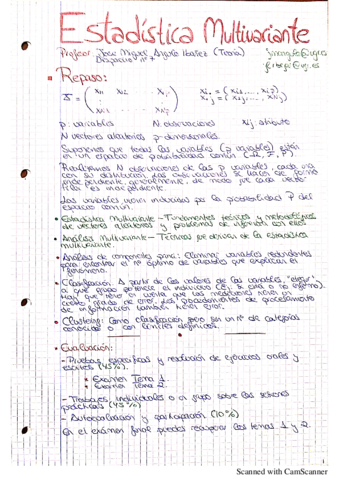 Estadística Multivariante
Profesor: José Miguel Angulo Ibáñez (Teoría)
Despacho nº 7
Repaso:
p: variables N observaciones xij: atributo
N vectores aleatorios p-dimensionales
Suponemos que todas las variables (p variables) están
en un espacio de probabilidad común
Realizamos N observaciones de las p variables, cada una
con su distribución. Las observaciones se hacen de forma
independiente, generalmente, de modo que cada vector
fila es independiente.
Las variables vienen inducidas por la probabilidad P del
espacio común.
Estadística Multivariante - Fundamentos teóricos y metodológicos
de vectores aleatorios y problemas de inferencia con ellos
Análisis Multivariante - Técnicas que derivan de la estadística
multivariante.
Análisis de componentes para: Eliminar variables redundantes
para encontrar el nº óptimo de variables que explican el
fenómeno.
Clasificación: A partir de los valores de las variables, "elegir"
a qué grupo pertenece el individuo
Hay que tener en cuenta que las mediciones tienen un
cierto grado de error. Los procedimientos de procesamiento
de información también tienen error.
Clustering: Como clasificación pero sin un nº de categorías
conocidas o con límites definidos.
Evaluación:
- Pruebas específicas y resolución de ejercicios orales y
escritos (45%).
Examen Tema 1.
Examen Tema 2.
- Trabajos individuales o en grupo sobre los
prácticas (45%)
- Autoevaluación y participación (10%)
En el exámen final puedes recuperar los temas 1 y 2.
1
Scanned with CamScanner